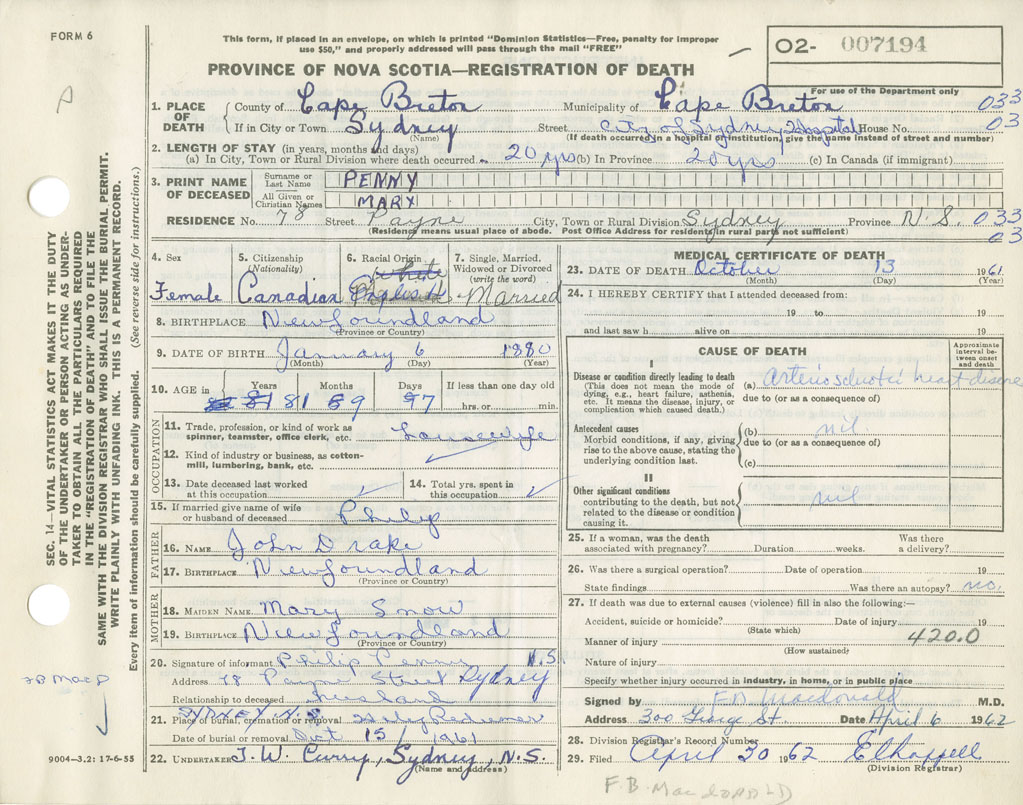 FORM 6
This form, if placed in an envelope, on which is printed "Dominion Statistics—Free, penalty for improper
use $50," and properly addressed will pass through the mail "FREE"
02- 007194
PROVINCE OF NOVA SCOTIA—REGISTRATION OF DEATH
For use of the Department only
A
1. PLACE OF DEATH
County of Cape Breton Municipality of Cape Breton 033
If in City or Town Sydney Street City of Sydney Hospital House No. 03
(Name) (If death occurred in a hospital or institution, give the name instead of street and number)
2. LENGTH OF STAY (in years, months and days)
(a) In City, Town or Rural Division where death occurred 20 yrs (b) In Province 20 yrs (c) In Canada (if immigrant)
3. PRINT NAME OF DECEASED
Surname or Last Name PENNY
All Given or Christian Names MARY
RESIDENCE No. 78 Street Payne City, Town or Rural Division Sydney Province N.S. 033
(Residence means usual place of abode. Post Office Address for residents in rural parts not sufficient) 03
4. Sex
Female
5. Citizenship
(Nationality)
Canadian
6. Racial Origin
White
English
7. Single, Married, Widowed or Divorced
(write the word)
Married
8. BIRTHPLACE Newfoundland
(Province or Country)
9. DATE OF BIRTH January 6 1880
(Month) (Day) (Year)
10. AGE in Years Months Days If less than one day old
81 81 9 7 hrs. or min.
OCCUPATION
11. Trade, profession, or kind of work as
spinner, teamster, office clerk, etc. housewife
12. Kind of industry or business, as cotton-
mill, lumbering, bank, etc.
13. Date deceased last worked
at this occupation
14. Total yrs. spent in
this occupation
15. If married give name of wife
or husband of deceased Philip
FATHER
16. NAME John Drake
17. BIRTHPLACE Newfoundland
(Province or Country)
MOTHER
18. MAIDEN NAME Mary Snow
19. BIRTHPLACE Newfoundland
(Province or Country)
20. Signature of informant Philip Penny N.S.
Address 78 Payne Street Sydney
Relationship to deceased Husband
SYDNEY N.S.
21. Place of burial, cremation or removal Holy Redeemer
Date of burial or removal Oct 15/1961
22. UNDERTAKER T. W. Curry, Sydney, N.S.
(Name and address)
MEDICAL CERTIFICATE OF DEATH
23. DATE OF DEATH October 13 1961
(Month) (Day) (Year)
24. I HEREBY CERTIFY that I attended deceased from:
19 to 19
and last saw h alive on 19
CAUSE OF DEATH
Approximate interval between onset and death
I
Disease or condition directly leading to death
(This does not mean the mode of
dying, e.g., heart failure, asthenia,
etc. It means the disease, injury, or
complication which caused death.)
(a) Arteriosclerotic heart disease
due to (or as a consequence of)
Antecedent causes
Morbid conditions, if any, giving
rise to the above cause, stating the
underlying condition last.
(b) nil
due to (or as a consequence of)
(c)
II
Other significant conditions
contributing to the death, but not
related to the disease or condition
causing it.
nil
25. If a woman, was the death
associated with pregnancy? Duration weeks. Was there a delivery?
26. Was there a surgical operation? Date of operation 19
State findings Was there an autopsy? no.
27. If death was due to external causes (violence) fill in also the following:—
Accident, suicide or homicide? Date of injury 19
(State which)
Manner of injury 420.0
(How sustained)
Nature of injury
Specify whether injury occurred in industry, in home, or in public place
Signed by F.B. Macdonald M.D.
Address 300 George St. Date April 6 1962
28. Division Registrar's Record Number
29. Filed April 30 1962
(Division Registrar)
F.B. MacDONALD
SEC. 14—VITAL STATISTICS ACT MAKES IT THE DUTY
OF THE UNDERTAKER OR PERSON ACTING AS UNDER-
TAKER TO OBTAIN ALL THE PARTICULARS REQUIRED
IN THE "REGISTRATION OF DEATH" AND TO FILE THE
SAME WITH THE DIVISION REGISTRAR WHO SHALL ISSUE THE BURIAL PERMIT.
WRITE PLAINLY WITH UNFADING INK. THIS IS A PERMANENT RECORD.
Every item of information should be carefully supplied. (See reverse side for instructions.)
FB MacD
9004-3.2: 17-6-55